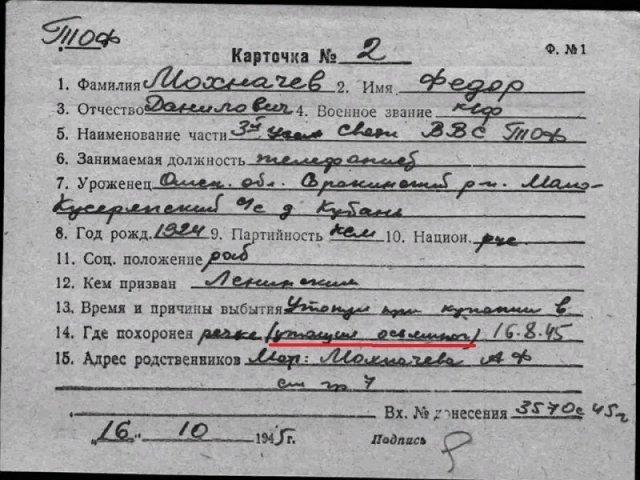 ТОФ
Карточка № 2
Ф. № 1
1. Фамилия Мохначев 2. Имя Федор
3. Отчество Данилович 4. Военное звание к/ф
5. Наименование части 3й Узел связи ВВС ТОФ
6. Занимаемая должность телефонист
7. Уроженец Омск. обл. р-н. Мало-
с/с д Кубань
8. Год рожд. 1924 9. Партийность 10. Национ. рус
11. Соц. положение раб
12. Кем призван Ленинским
13. Время и причины выбытия Утонул при купании в
14. Где похоронен речке (утащил осьминог) 16.8.45
15. Адрес родственников Мар: Мохначева А Ф
ст гр 7
Вх. № донесения 3570с 45г
„16" 10 1945г. Подпись